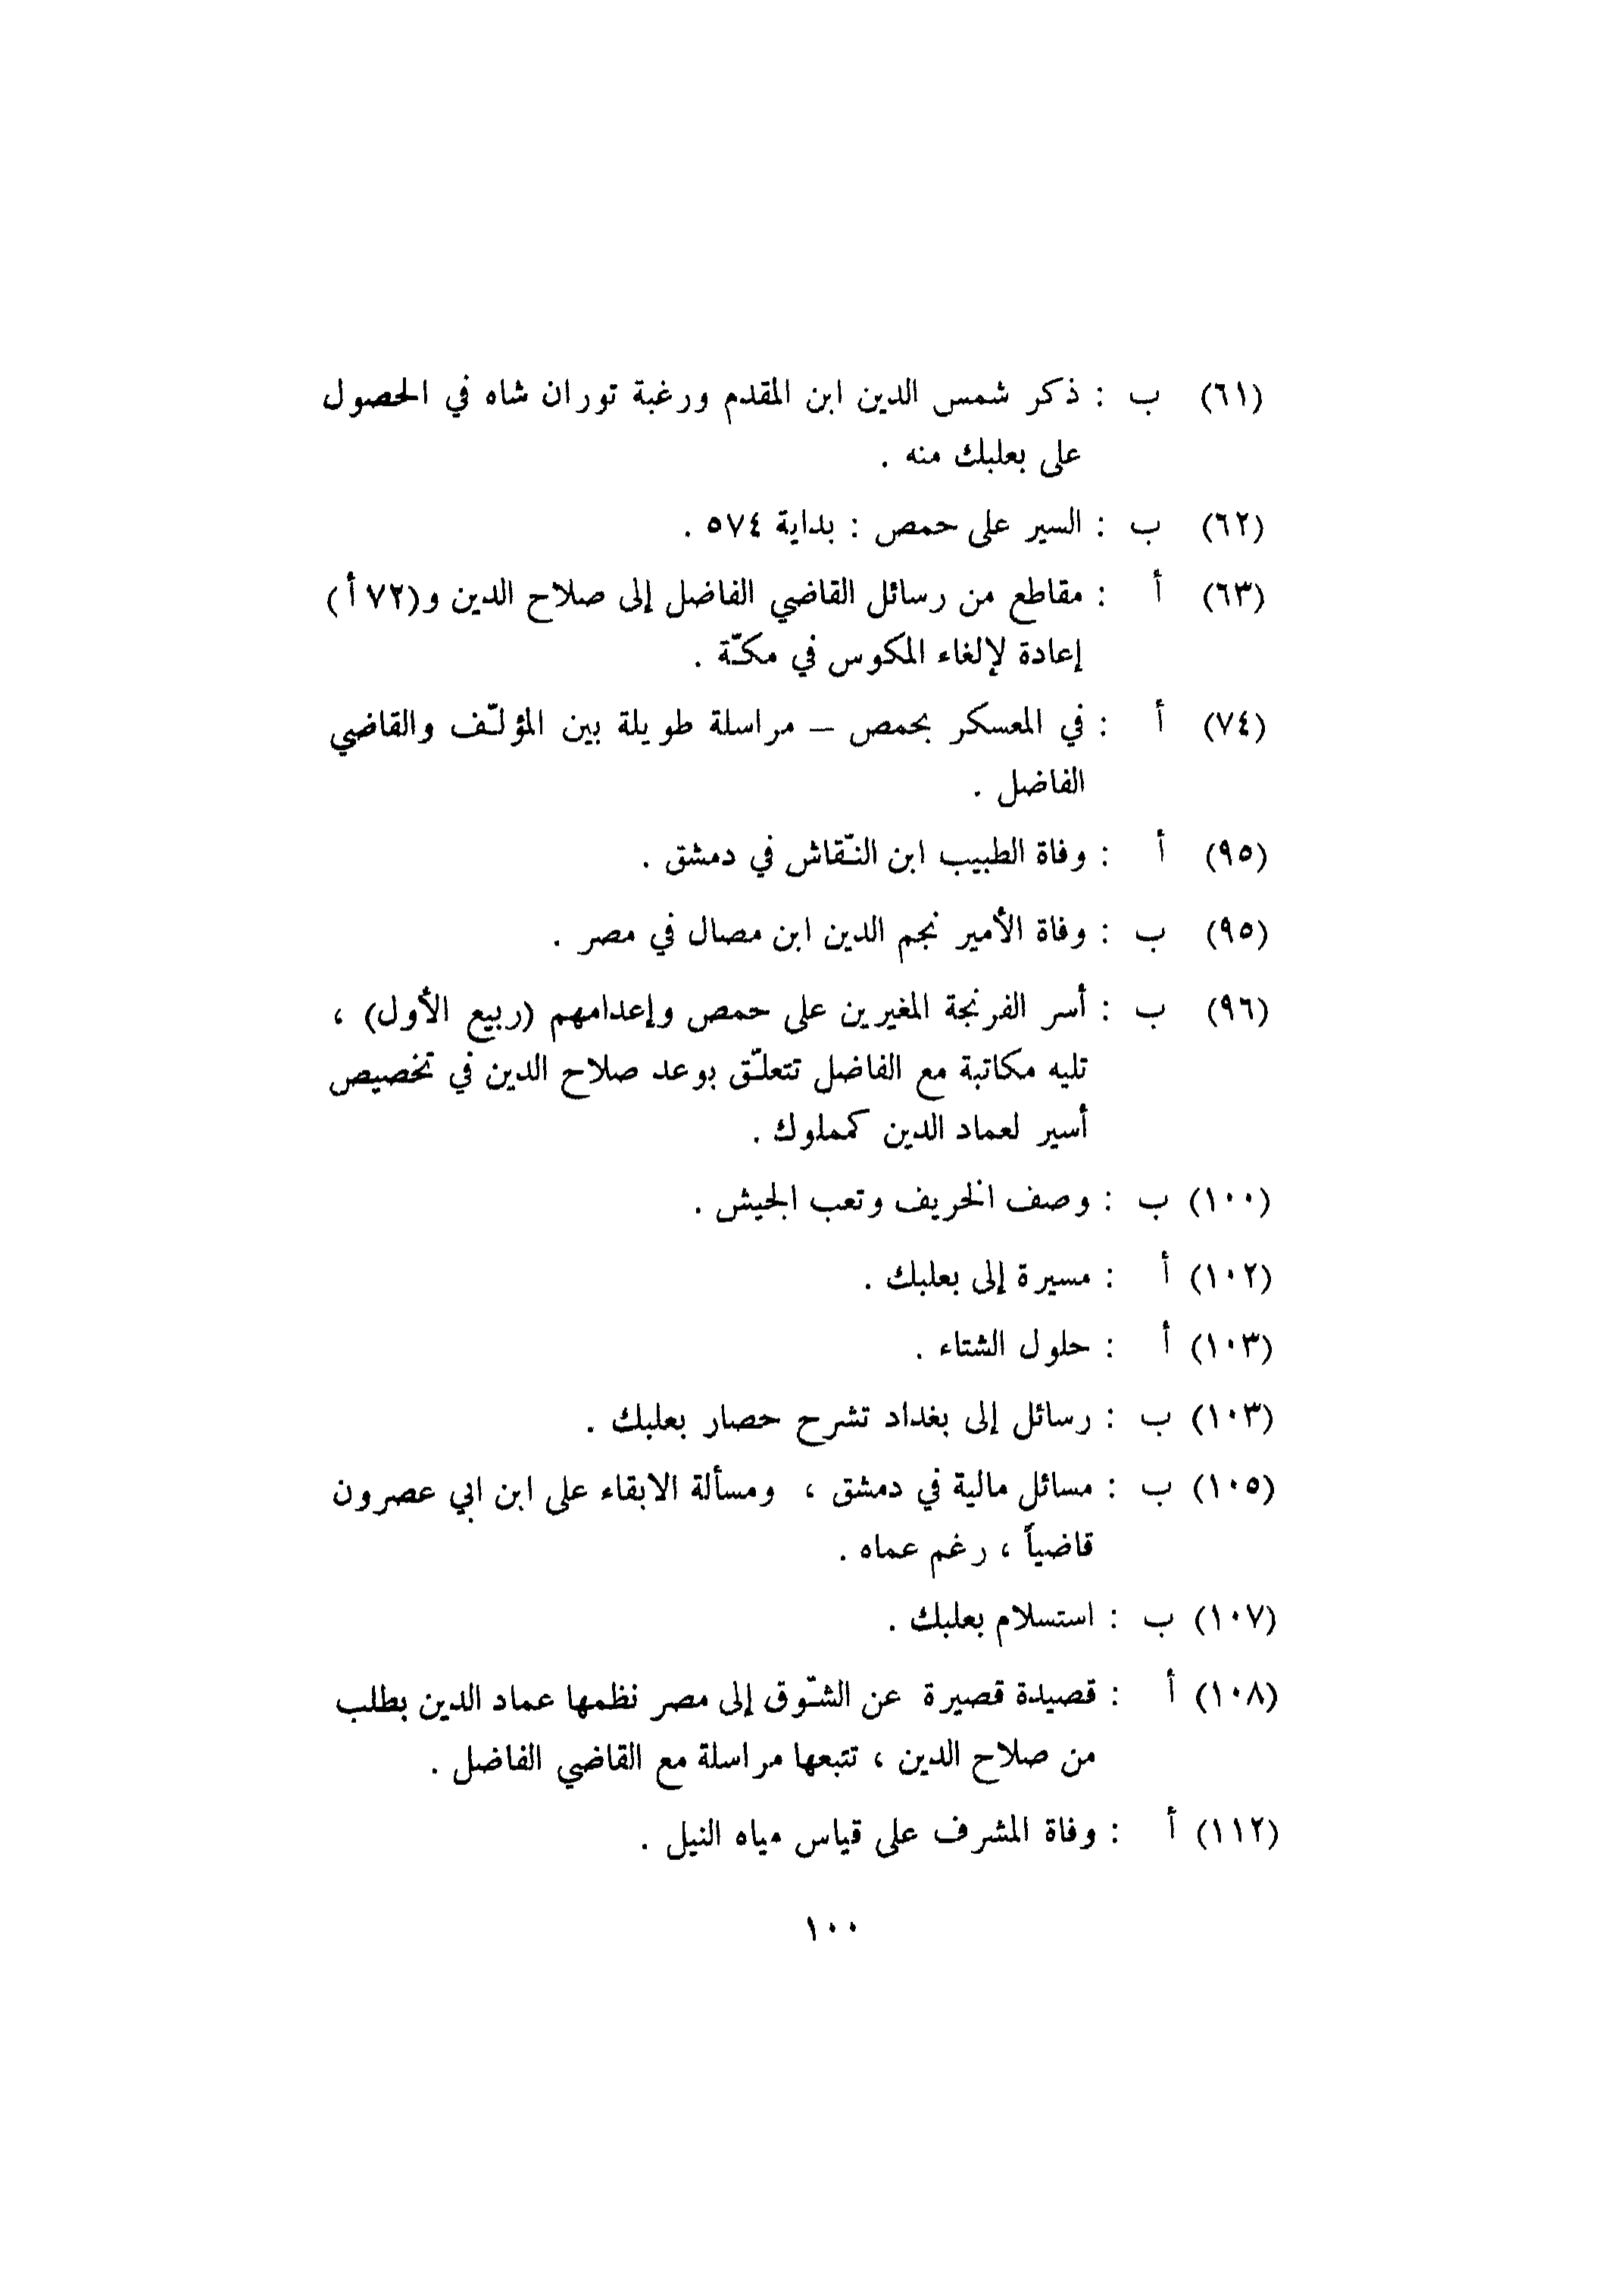 (٦١) ب : ذكر شمس الدين ابن المقدم ورغبة توران شاه في الحصول
على بعلبك منه .
(٦٢) ب : السير على حمص : بداية ٥٧٤ .
(٦٣) أ : مقاطع من رسائل القاضي الفاضل إلى صلاح الدين و(٧٢ أ)
إعادة لإلغاء المكوس في مكّة .
(٧٤) أ : في المعسكر بحمص – مراسلة طويلة بين المؤلّف والقاضي
الفاضل .
(٩٥) أ : وفاة الطبيب ابن النّقاش في دمشق .
(٩٥) ب : وفاة الأمير نجم الدين ابن مصال في مصر .
(٩٦) ب : أسر الفرنجة المغيرين على حمص وإعدامهم (ربيع الأول) ،
تليه مكاتبة مع الفاضل تتعلّق بوعد صلاح الدين في تخصيص
أسير لعماد الدين كمملوك .
(١٠٠) ب : وصف الخريف وتعب الجيش .
(١٠٢) أ : مسيرة إلى بعلبك .
(١٠٣) أ : حلول الشتاء .
(١٠٣) ب : رسائل إلى بغداد تشرح حصار بعلبك .
(١٠٥) ب : مسائل مالية في دمشق ، ومسألة الابقاء على ابن ابي عصرون
قاضياً ، رغم عماه .
(١٠٧) ب : استسلام بعلبك .
(١٠٨) أ : قصيدة قصيرة عن الشّوق إلى مصر نظمها عماد الدين بطلب
من صلاح الدين ، تتبعها مراسلة مع القاضي الفاضل .
(١١٢) أ : وفاة المشرف على قياس مياه النيل .
١٠٠